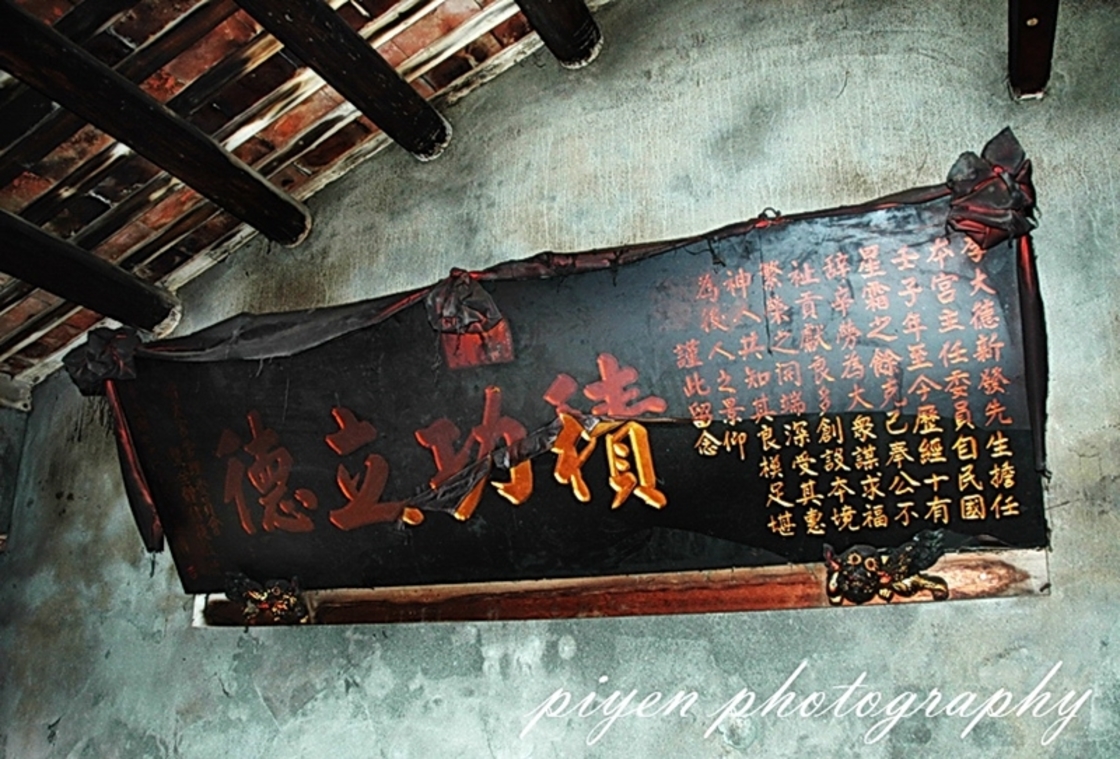 李大德新發先生擔任
本宮主任委員自民國
壬子年至今歷經十有
星霜之餘克己奉公不
辭辛勞為大眾謀求福
祉貢獻良多創設本境
繁榮之同端深受其惠
神人共知其良模足堪
為後人之景仰
謹此留念
積功立德
piyen photography